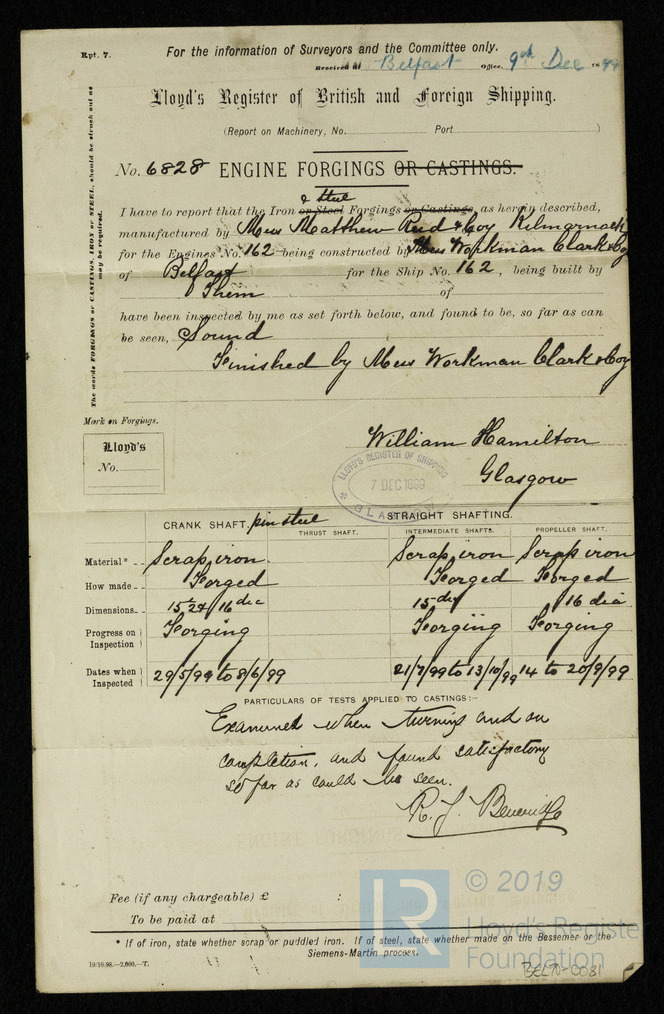 Rpt. 7.
For the information of Surveyors and the Committee only.
Received at Belfast Office, 9th Dec 1899
Lloyd's Register of British and Foreign Shipping.
(Report on Machinery, No. Port )
No. 6828 ENGINE FORGINGS OR CASTINGS.
& Steel
I have to report that the Iron or Steel Forgings or Castings, as herein described,
manufactured by Mess Matthew Reid & Coy Kilmarnock
for the Engines No. 162 being constructed by Mess Workman Clark & Coy
of Belfast for the Ship No. 162, being built by
Them of
have been inspected by me as set forth below, and found to be, so far as can
be seen, Sound
Finished by Mess Workman Clark & Coy
The words FORGINGS or CASTINGS, IRON or STEEL, should be struck out as
may be required.
Mark on Forgings.
Lloyd's
No.
William Hamilton
Glasgow
LLOYD'S REGISTER OF SHIPPING
7 DEC 1899
GLASGOW
CRANK SHAFT. pin steel STRAIGHT SHAFTING.
THRUST SHAFT. INTERMEDIATE SHAFTS. PROPELLER SHAFT.
Material* Scrap iron Scrap iron Scrap iron
How made Forged Forged Forged
Dimensions 15 dia 16 dia
Progress on Inspection Forging Forging Forging
Dates when Inspected 29/5/99 to 8/6/99 21/7/99 to 13/10/99 14 to 20/9/99
PARTICULARS OF TESTS APPLIED TO CASTINGS:—
Examined when turning and on
completion, and found satisfactory
so far as could be seen.
R. J. Beveridge
Fee (if any chargeable) £ :
To be paid at
* If of iron, state whether scrap or puddled iron. If of steel, state whether made on the Bessemer or the
Siemens-Martin process.
19/10/98.—2,000.—T.
LR
© 2019
Lloyd's Register
Foundation
BEL70-0081